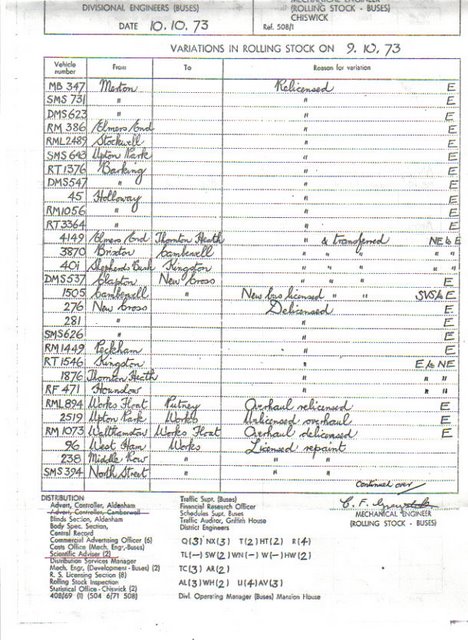 DIVISIONAL ENGINEERS (BUSES)
(ROLLING STOCK - BUSES)
CHISWICK
DATE 10.10.73 Ref. 508/1
VARIATIONS IN ROLLING STOCK ON 9.10.73
Vehicle number From To Reason for variation
MB 347 Merton Relicensed E
SMS 731 " " E
DMS 623 " " E
RM 386 Elmers End " E
RML 2489 Stockwell " E
SMS 643 Upton Park " E
RT 1376 Barking " E
DMS 547 " " E
45 Holloway " E
RM 1056 " " E
RT 3364 " " E
4149 Elmers End Thornton Heath " & transferred NE to E
3870 Brixton Camberwell " " " " "
401 Shepherds Bush Kingston " " " " "
DMS 537 Clapton New Cross " " " E
1505 Camberwell " New bus licensed " " SVS to E
276 New Cross Delicensed E
281 " " E
SMS 626 " " E
RM 1449 Peckham " E
RT 1546 Kingston " E to NE
1876 Thornton Heath " " "
RF 471 Hounslow " " "
RML 894 Works Float Putney Overhaul relicensed E
2519 Upton Park Works Unlicensed overhaul E
RM 1073 Walthamstow Works Float Overhaul delicensed E
96 West Ham Works Licensed repaint
238 Middle Row " " "
SMS 394 North Street " " "
Continued over
DISTRIBUTION
Advert. Controller, Aldenham
Advert. Controller, Camberwell
Blinds Section, Aldenham
Body Spec. Section,
Central Record
Commercial Advertising Officer (6)
Costs Office (Mech. Engr.-Buses)
Scientific Adviser (2)
Distribution Services Manager
Mech. Engr. (Development - Buses) (2)
R. S. Licensing Section (8)
Rolling Stock Inspection
Statistical Office - Chiswick (2)
408/69 (1) (504 6/71 508)
Traffic Supt. (Buses)
Financial Research Officer
Schedules Supt. Buses
Traffic Auditor, Griffith House
District Engineers
Q(3) NX(3) T(2) HT(2) R(4)
TL(-) SW(2) WN(-) W(-) HW(2)
TC(3) AR(2)
AL(3) WH(2) U(4) AV(3)
Divl. Operating Manager (Buses) Mansion House
MECHANICAL ENGINEER
(ROLLING STOCK - BUSES)